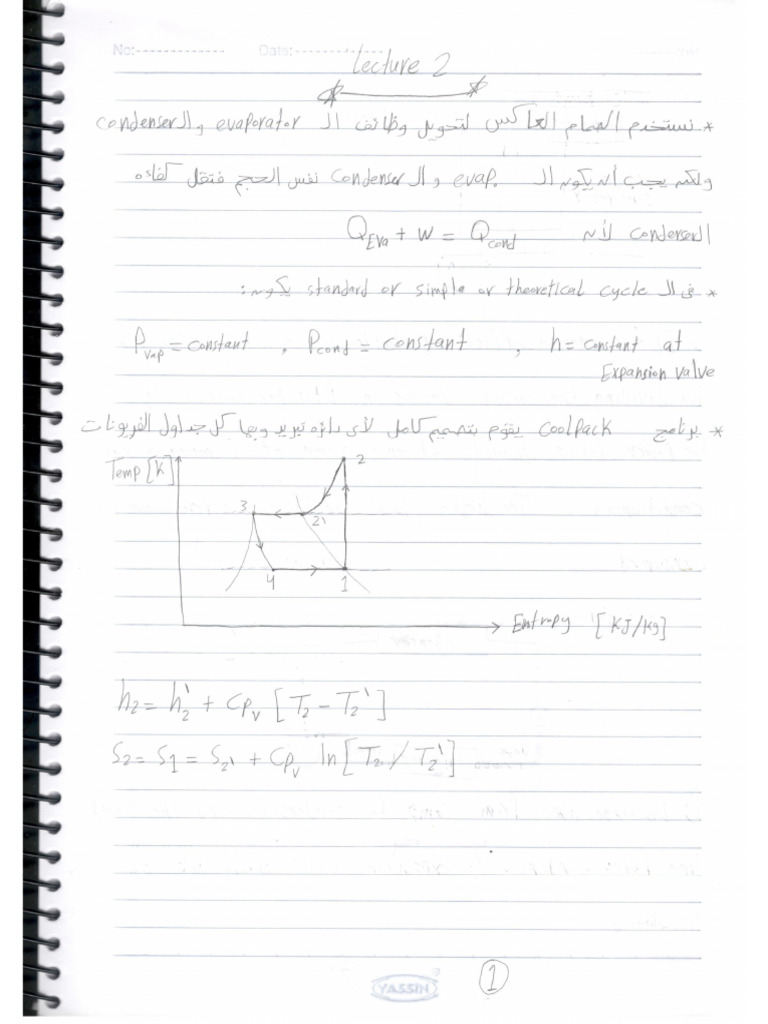 No:
Date:
Lecture 2
* نستخدم الصمام العاكس لتحويل وظائف الـ evaporator والـ condenser
ولكن يجب أن يكون الـ evap. والـ condenser نفس الحجم فتقل كفاءه
الـ condenser لأن Q_Eva + W = Q_cond
* فى الـ standard or simple or theoretical cycle يكون:
P_Vap = constant , P_cond = constant , h = constant at
Expansion valve
* برنامج CoolPack يقوم بتصميم كامل لأى دائرة تبريد وبها كل جداول الفريونات
Temp [K]
2
3
2'
4
1
Entropy [KJ/Kg]
h2 = h2' + Cp_v [T2 - T2']
S2 = S1 = S2' + Cp_v ln [T2 / T2']
1
YASSIN